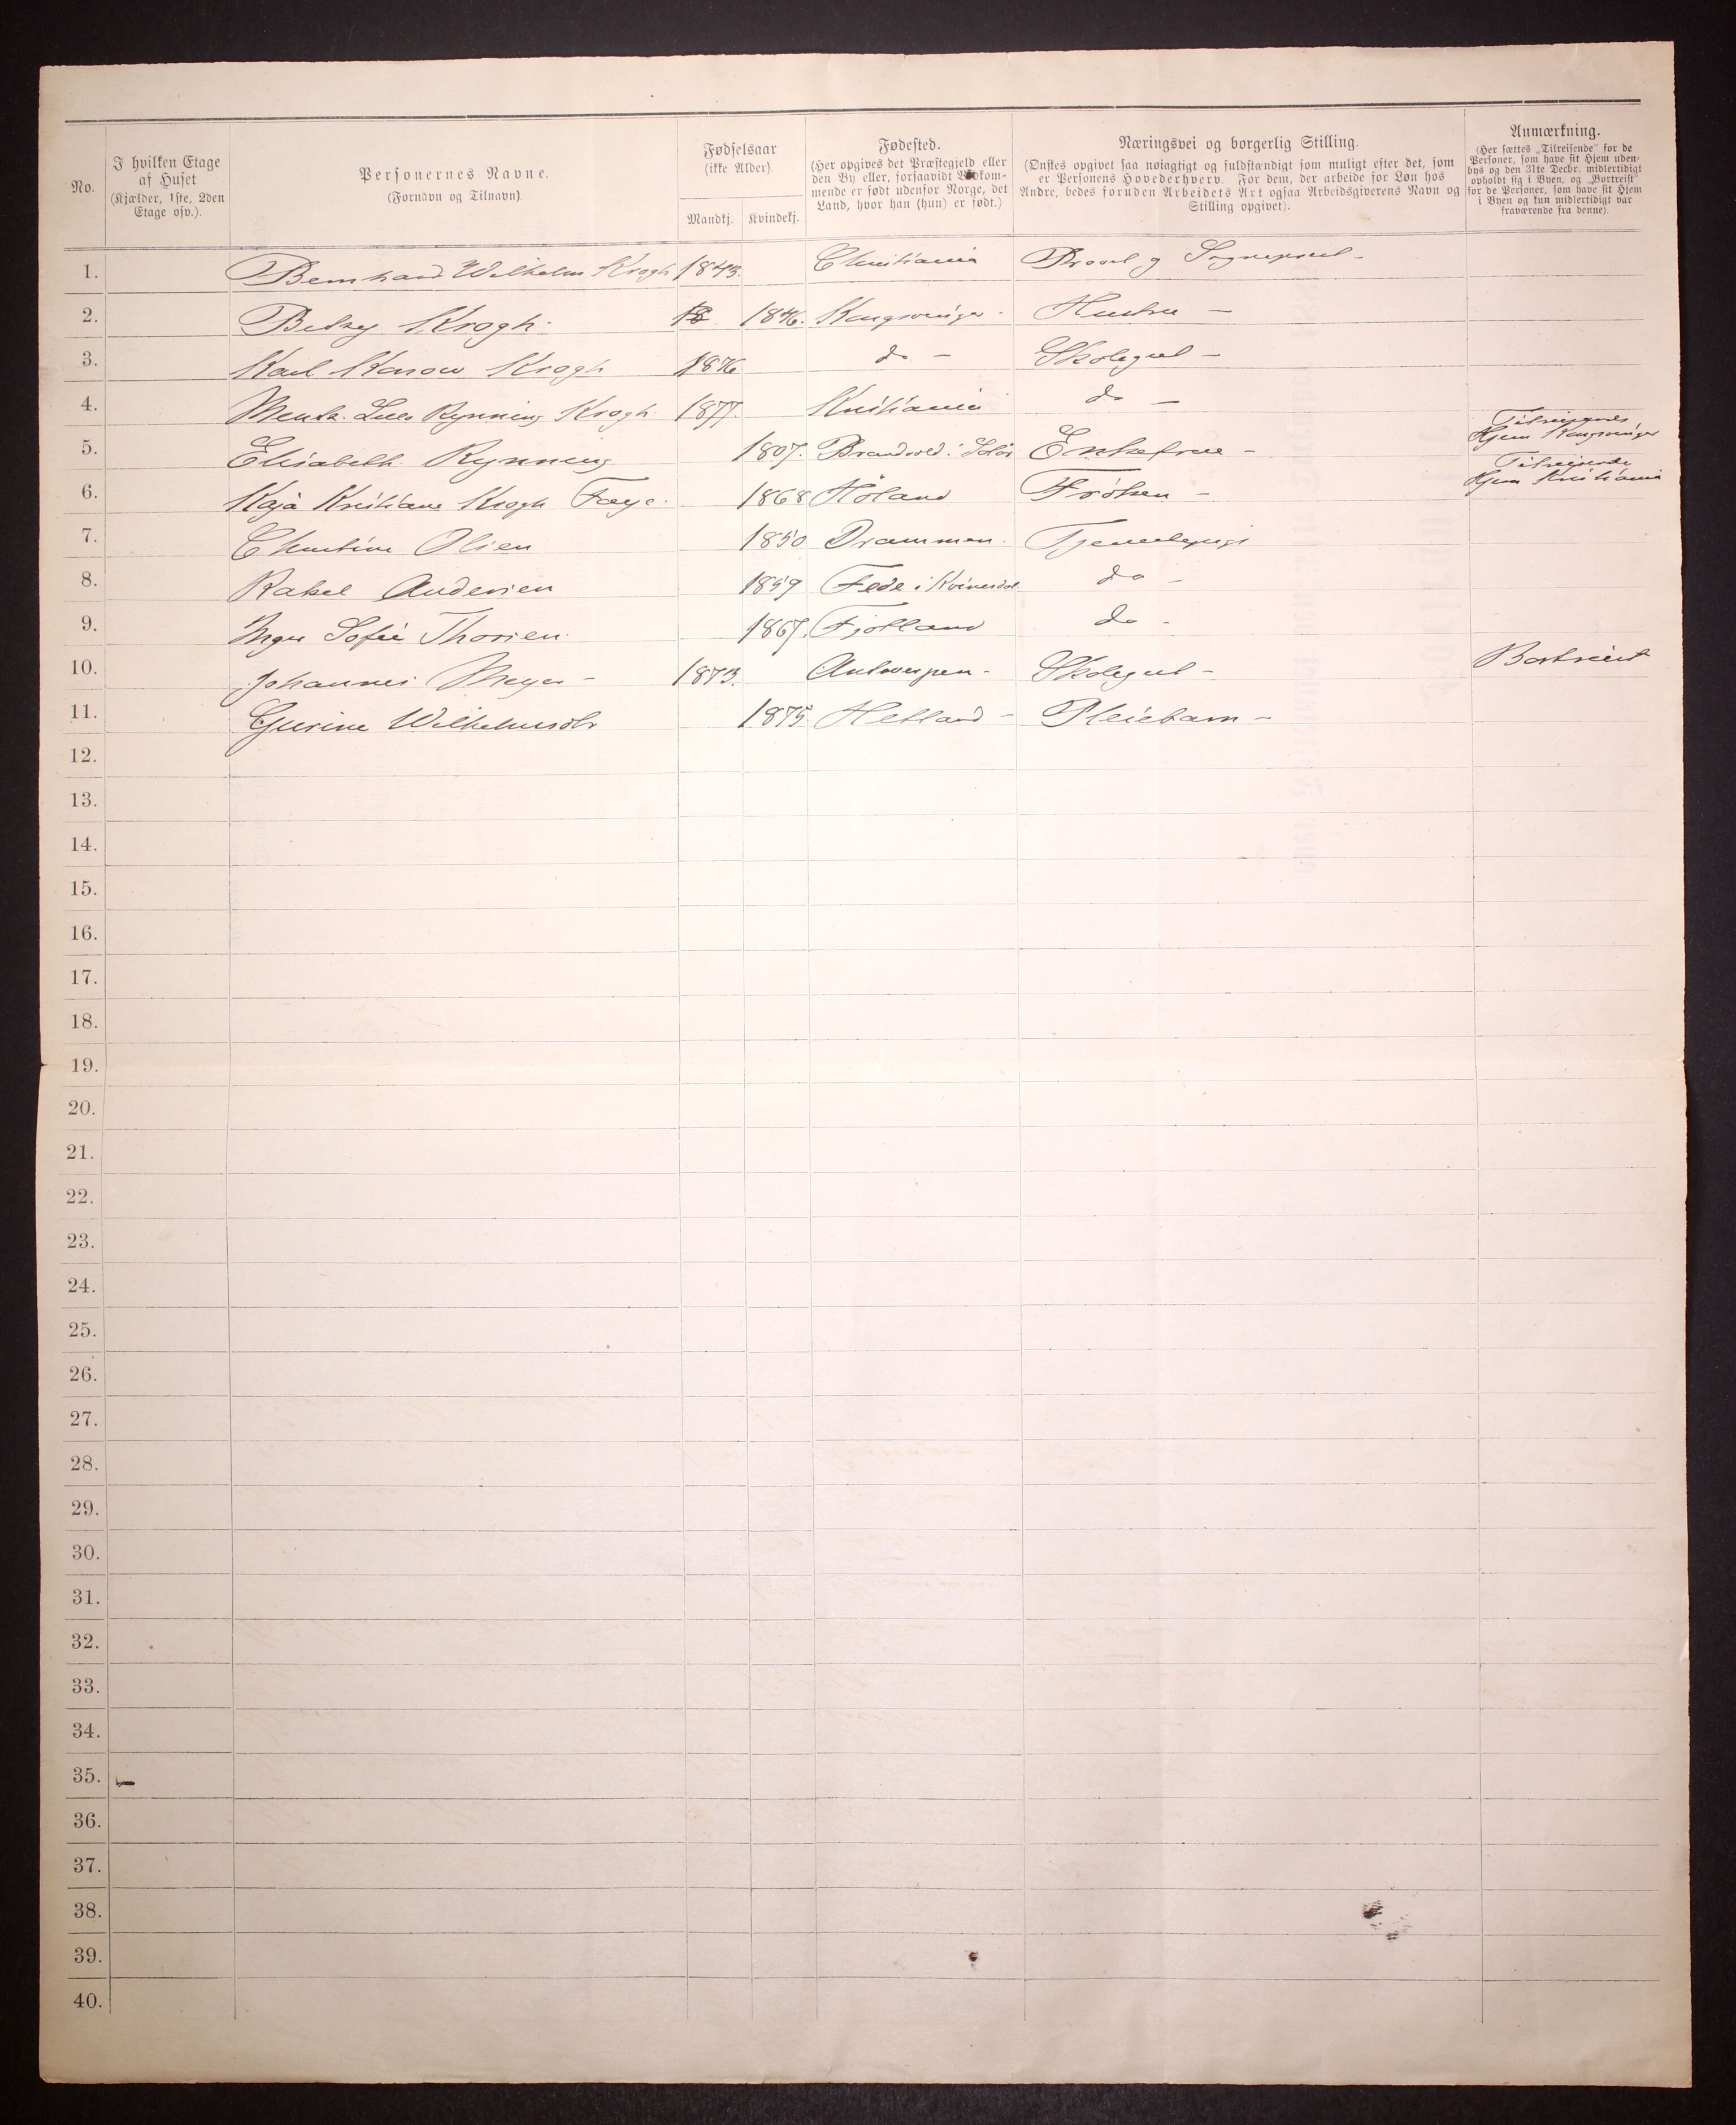 No.
I hvilken Etage
af Huset
(Kjælder, 1ste, 2den
Etage osv.).
Personernes Navne.
(Fornavn og Tilnavn).
Fødselsaar
(ikke Alder).
Mandkj. Kvindekj.
Fødested.
(Her opgives det Præstegjeld eller
den By eller, forsaavidt Vedkom-
mende er født udenfor Norge, det
Land, hvor han (hun) er født.)
Næringsvei og borgerlig Stilling.
(Ønskes opgivet saa nøiagtigt og fuldstændigt som muligt efter det, som
er Personens Hovederhverv. For dem, der arbeide for Løn hos
Andre, bedes foruden Arbeidets Art ogsaa Arbeidsgiverens Navn og
Stilling opgivet).
Anmærkning.
(Her sættes „Tilreisende" for de
Personer, som have sit Hjem uden-
bys og den 31te Decbr. midlertidigt
opholdt sig i Byen, og „Bortreist"
for de Personer, som have sit Hjem
i Byen og kun midlertidigt var
fraværende fra denne).
1. Bernhard Wilhelm Krogh 1843. Christiania Provst og Sognepræst -
2. Betsy Krogh. 18 1846. Kongsvinger - Hustru -
3. Karl Krogh 1876 do - Skolegut -
4. Rynning Krogh. 1877. Kristiania do -
5. Elisabeth Rynning 1807. Brandvold i Solør Enkefrue - Tilreisende Hjem Kongsvinger
6. Kaja Kristiane Krogh Faye. 1868 Høland Frøken - Tilreisende Hjem Kristiania
7. Christine Olsen 1850 Drammen. Tjenestepige
8. Rakel Andersen 1859 Fede i Kvinesdal do -
9. Inger Sofie Thorsen. 1867. Fjotland do -
10. Johannes Meyer - 1873. Antwerpen - Skolegut - Bortreist
11. Gurine Wilhelmsdtr 1875 Hetland - Pleiebarn -
12.
13.
14.
15.
16.
17.
18.
19.
20.
21.
22.
23.
24.
25.
26.
27.
28.
29.
30.
31.
32.
33.
34.
35.
36.
37.
38.
39.
40.